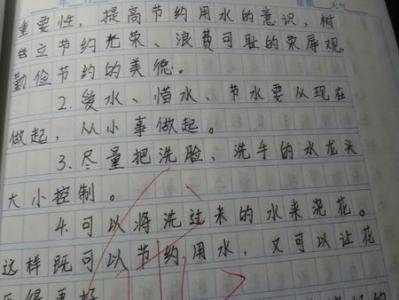 重要性，提高节约用水的意识，树
立节约光荣、浪费可耻的荣辱观
勤俭节约的美德。
2.爱水、惜水、节水要从现在
做起，从小事做起。
3.尽量把洗脸，洗手的水龙头
大小控制。
4.可以将洗过来的水来浇花。
这样既可以节约用水，又可以让花
得更好